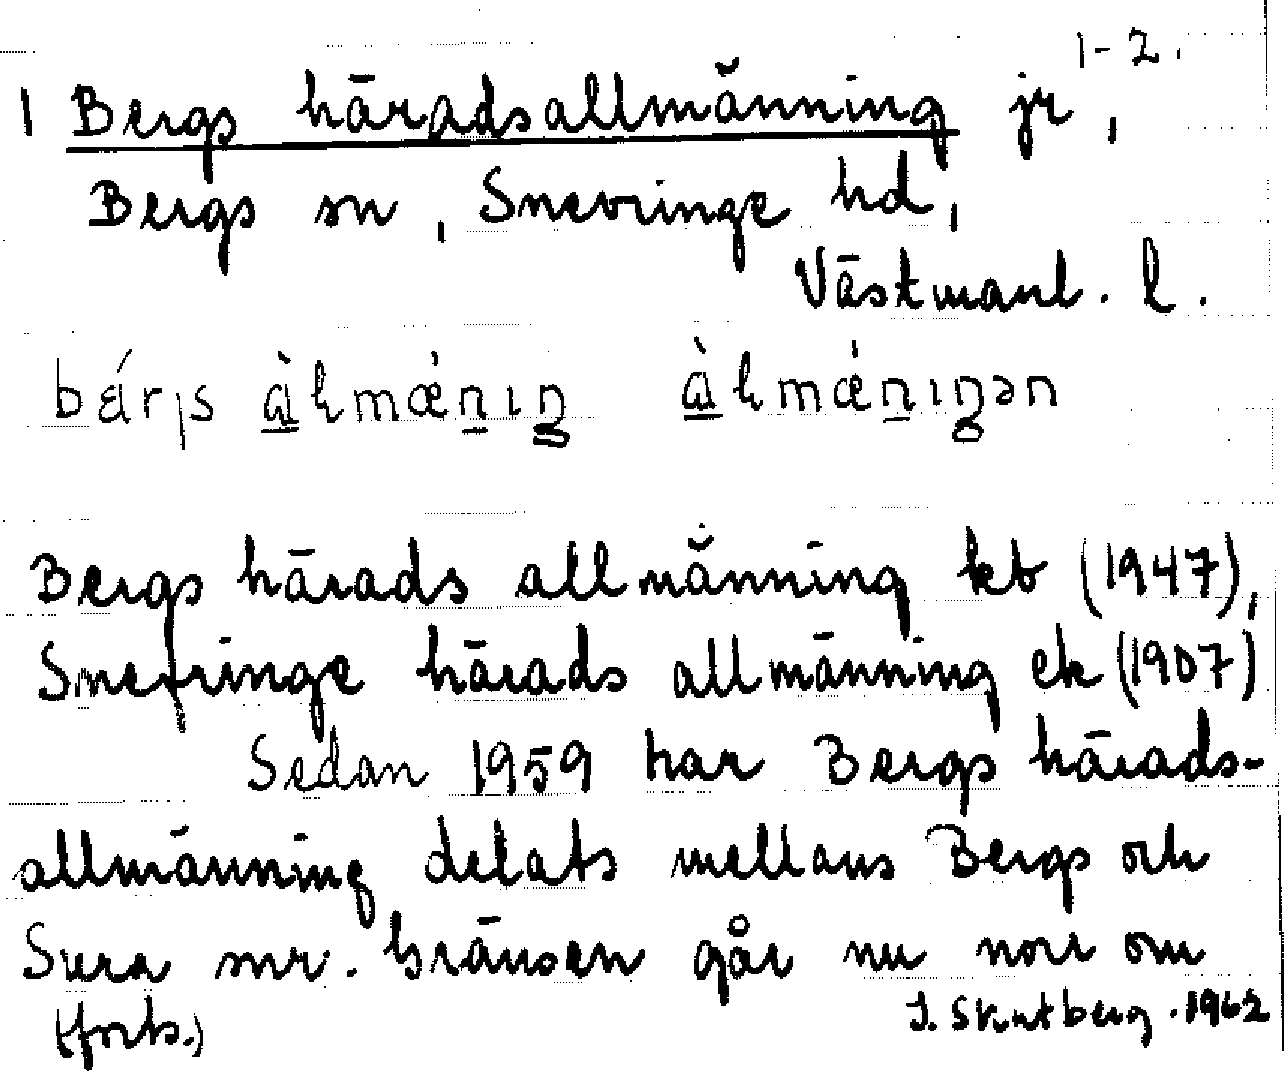 1-2.
1 Bergs häradsallmänning jr,
Bergs sn, Snevringe hd,
Västmanl. l.
Bergs härads allmänning kb (1947),
Snefringe härads allmänning ek (1907)
Sedan 1959 har Bergs härads-
allmänning delats mellans Bergs och
Sura snr. Gränsen går nu norr om
(forts.)
J. Skutberg. 1962